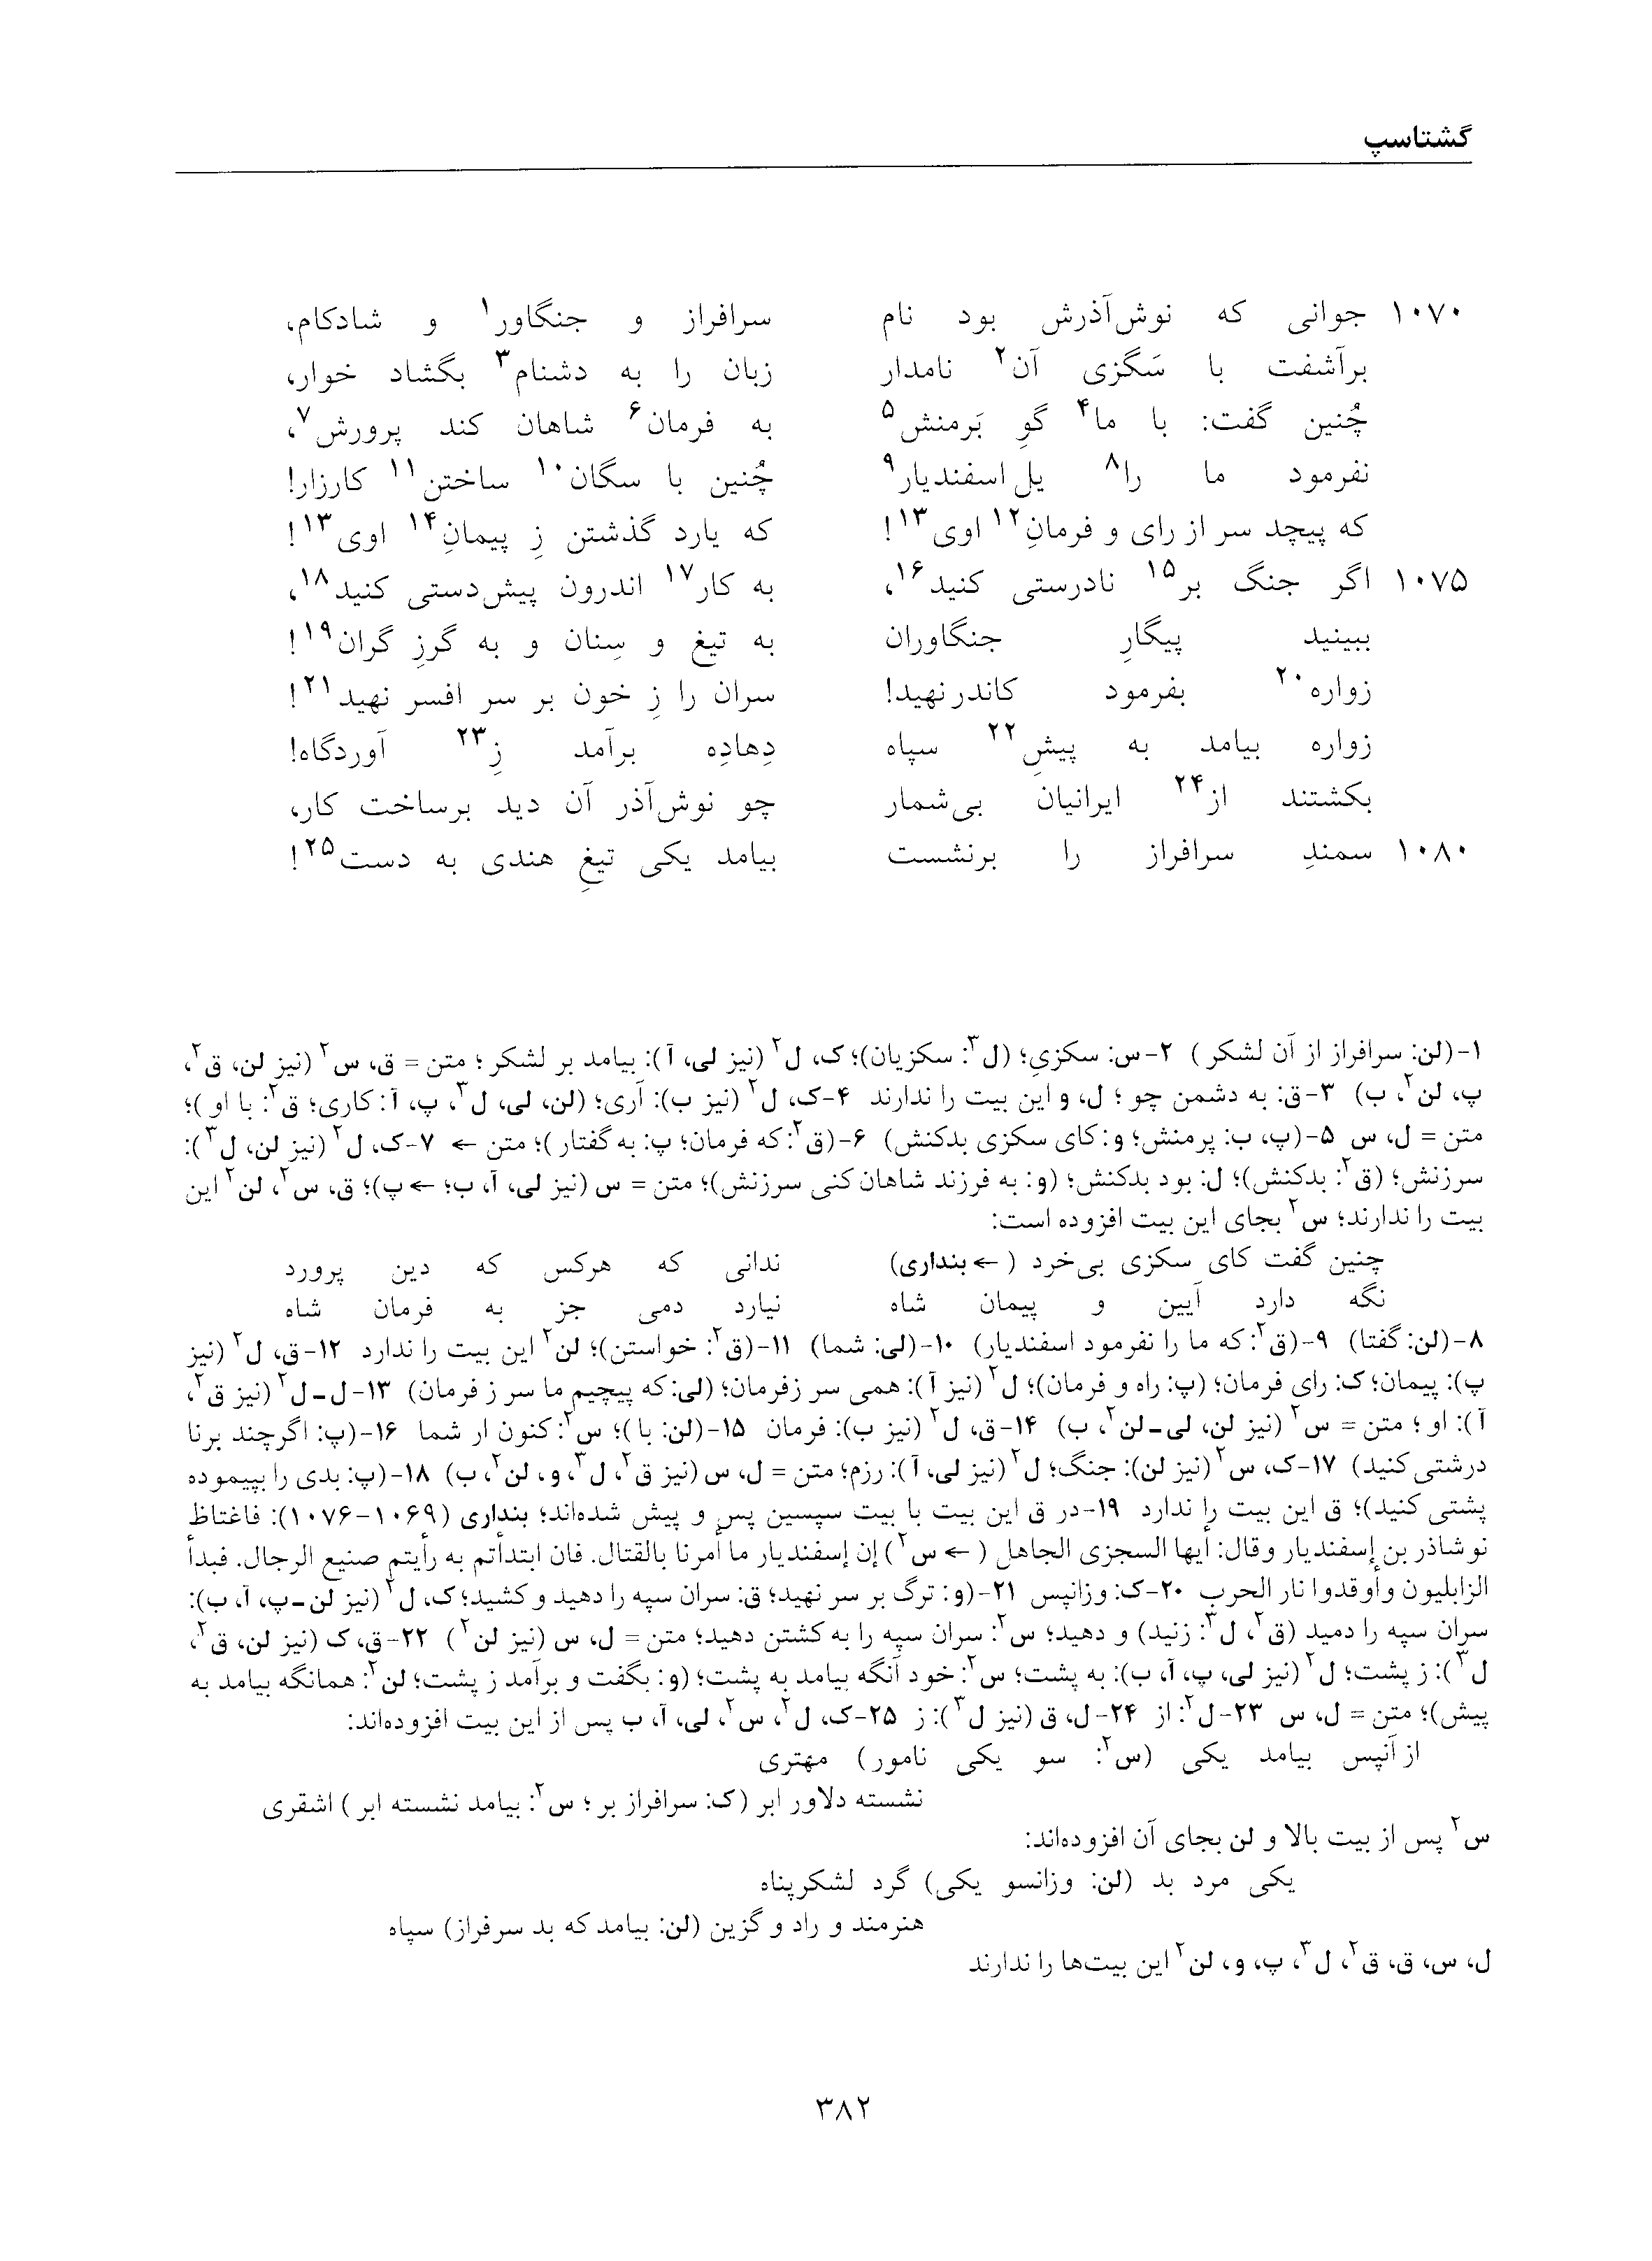 گشتاسپ
۱۰۷۰ جوانی که نوش‌آذرش بود نام سرافراز و جنگاور۱ و شادکام،
برآشفت با سَگزی آن۲ نامدار زبان را به دشنام۳ بگشاد خوار،
چُنین گفت: با ما۴ گوِ بَرمنش۵ به فرمان۶ شاهان کند پرورش۷،
نفرمود ما را۸ یل اسفندیار۹ چُنین با سگان۱۰ ساختن۱۱ کارزار!
که پیچد سر از رای و فرمانِ۱۲ اوی۱۳! که یارد گذشتن زِ پیمانِ۱۴ اوی۱۳!
۱۰۷۵ اگر جنگ بر۱۵ نادرستی کنید۱۶، به کار۱۷ اندرون پیش‌دستی کنید۱۸،
ببینید پیگارِ جنگاوران به تیغ و سِنان و به گرزِ گران۱۹!
زواره۲۰ بفرمود کاندر نهید! سران را زِ خون بر سر افسر نهید۲۱!
زواره بیامد به پیشِ۲۲ سپاه دِهاده برآمد زِ۲۳ آوردگاه!
بکشتند از۲۴ ایرانیان بی‌شمار چو نوش‌آذر آن دید برساخت کار،
۱۰۸۰ سمندِ سرافراز را برنشست بیامد یکی تیغِ هندی به دست۲۵!
۱-(لن: سرافراز از آن لشکر) ۲-س: سکزیِ؛ (ل۳: سکزیان)؛ ک، ل۲ (نیز لی، آ): بیامد بر لشکر؛ متن = ق، س۲ (نیز لن، ق۲،
پ، لن۲، ب) ۳-ق: به دشمن چو؛ ل، و این بیت را ندارند ۴-ک، ل۲ (نیز ب): آری؛ (لن، لی، ل۳، پ، آ: کاری؛ ق۲: با او)؛
متن = ل، س ۵-(پ، ب: پرمنش؛ و: کای سکزی بدکنش) ۶-(ق۲: که فرمان؛ پ: به گفتار)؛ متن ← ۷-ک، ل۲ (نیز لن، ل۳):
سرزنش؛ (ق۲: بدکنش)؛ ل: بود بدکنش؛ (و: به فرزند شاهان کنی سرزنش)؛ متن = س (نیز لی، آ، ب؛ ← پ)؛ ق، س۲، لن۲ این
بیت را ندارند؛ س۲ بجای این بیت افزوده است:
چنین گفت کای سکزی بی‌خرد (← بنداری) ندانی که هرکس که دین پرورد
نگه دارد آیین و پیمان شاه نیارد دمی جز به فرمان شاه
۸-(لن: گفتا) ۹-(ق۲: که ما را نفرمود اسفندیار) ۱۰-(لی: شما) ۱۱-(ق۲: خواستن)؛ لن۲ این بیت را ندارد ۱۲-ق، ل۲ (نیز
پ): پیمان؛ ک: رای فرمان؛ (پ: راه و فرمان)؛ ل۲ (نیز آ): همی سر زفرمان؛ (لی: که پیچیم ما سر ز فرمان) ۱۳-ل-ل۲ (نیز ق۲،
آ): او؛ متن = س۲ (نیز لن، لی-لن۲، ب) ۱۴-ق، ل۲ (نیز ب): فرمان ۱۵-(لن: با)؛ س۲: کنون ار شما ۱۶-(پ: اگرچند برنا
درشتی کنید) ۱۷-ک، س۲ (نیز لن): جنگ؛ ل۲ (نیز لی، آ): رزم؛ متن = ل، س (نیز ق۲، ل۳، و، لن۲، ب) ۱۸-(پ: بدی را بپیموده
پشتی کنید)؛ ق این بیت را ندارد ۱۹-در ق این بیت با بیت سپسین پس و پیش شده‌اند؛ بنداری (۱۰۶۹-۱۰۷۶): فاغتاظ
نوشاذر بن إسفندیار وقال: أیها السجزی الجاهل (← س۲) إن إسفندیار ما أمرنا بالقتال. فان ابتدأتم به رأیتم صنیع الرجال. فبدأ
الزابلیون وأوقدوا نار الحرب ۲۰-ک: وزانپس ۲۱-(و: ترگ بر سر نهید؛ ق: سران سپه را دهید و کشید؛ ک، ل۲ (نیز لن-پ، آ، ب):
سران سپه را دمید (ق۲، ل۳: زنید) و دهید؛ س۲: سران سپه را به کشتن دهید؛ متن = ل، س (نیز لن۲) ۲۲-ق، ک (نیز لن، ق۲،
ل۳): ز پشت؛ ل۲ (نیز لی، پ، آ، ب): به پشت؛ س۲: خود آنگه بیامد به پشت؛ (و: بگفت و برآمد ز پشت؛ لن۲: همانگه بیامد به
پیش)؛ متن = ل، س ۲۳-ل۲: از ۲۴-ل، ق (نیز ل۳): ز ۲۵-ک، ل۲، س۲، لی، آ، ب پس از این بیت افزوده‌اند:
از آنپس بیامد یکی (س۲: سو یکی نامور) مهتری
نشسته دلاور ابر (ک: سرافراز بر؛ س۲: بیامد نشسته ابر) اشقری
س۲ پس از بیت بالا و لن بجای آن افزوده‌اند:
یکی مرد بد (لن: وزانسو یکی) گرد لشکرپناه
هنرمند و راد و گزین (لن: بیامد که بد سرفراز) سپاه
ل، س، ق، ق۲، ل۳، پ، و، لن۲ این بیت‌ها را ندارند
۳۸۲